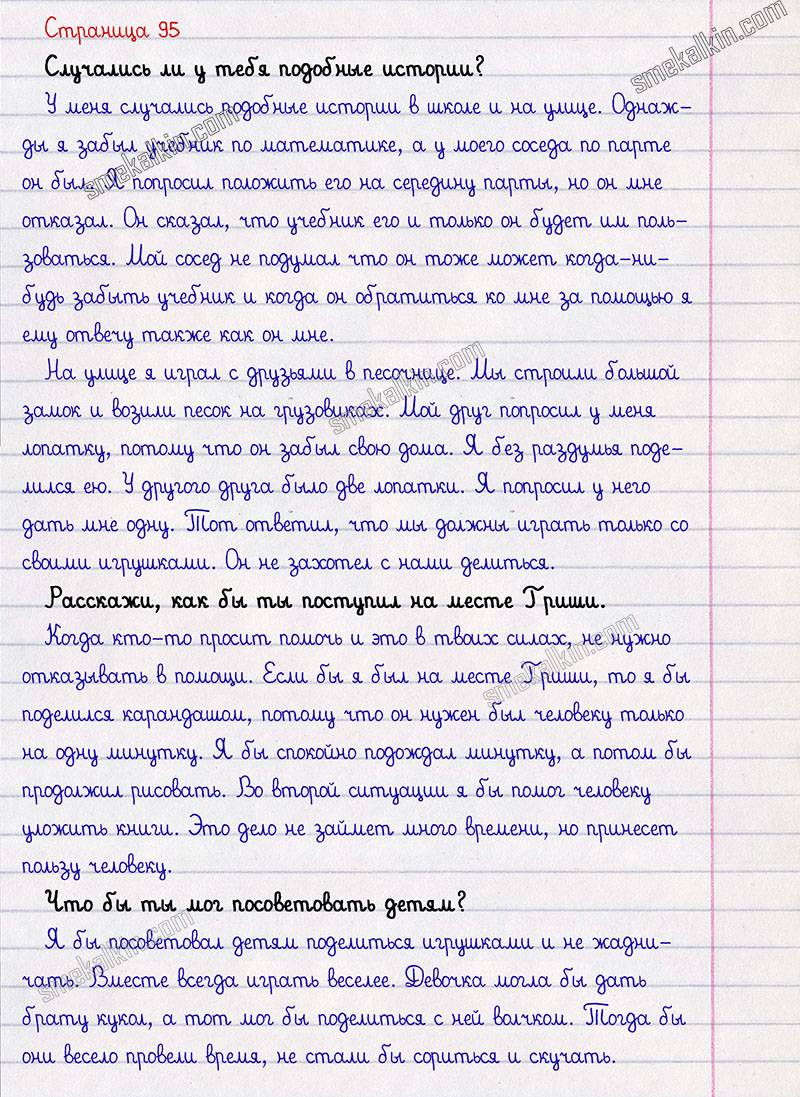 Страница 95
Случались ли у тебя подобные истории?
У меня случались подобные истории в школе и на улице. Однаж-
ды я забыл учебник по математике, а у моего соседа по парте
он был. Я попросил положить его на середину парты, но он мне
отказал. Он сказал, что учебник его и только он будет им поль-
зоваться. Мой сосед не подумал что он тоже может когда-ни-
будь забыть учебник и когда он обратиться ко мне за помощью я
ему отвечу также как он мне.
На улице я играл с друзьями в песочнице. Мы строили большой
замок и возили песок на грузовиках. Мой друг попросил у меня
лопатку, потому что он забыл свою дома. Я без раздумья поде-
лился ею. У другого друга было две лопатки. Я попросил у него
дать мне одну. Тот ответил, что мы должны играть только со
своими игрушками. Он не захотел с нами делиться.
Расскажи, как бы ты поступил на месте Гриши.
Когда кто-то просит помочь и это в твоих силах, не нужно
отказывать в помощи. Если бы я был на месте Гриши, то я бы
поделился карандашом, потому что он нужен был человеку только
на одну минутку. Я бы спокойно подождал минутку, а потом бы
продолжил рисовать. Во второй ситуации я бы помог человеку
уложить книги. Это дело не займет много времени, но принесет
пользу человеку.
Что бы ты мог посоветовать детям?
Я бы посоветовал детям поделиться игрушками и не жадни-
чать. Вместе всегда играть веселее. Девочка могла бы дать
брату кукол, а тот мог бы поделиться с ней волчком. Тогда бы
они весело провели время, не стали бы сориться и скучать.
smekalkin.com
smekalkin.com
smekalkin.com
smekalkin.com
smekalkin.com